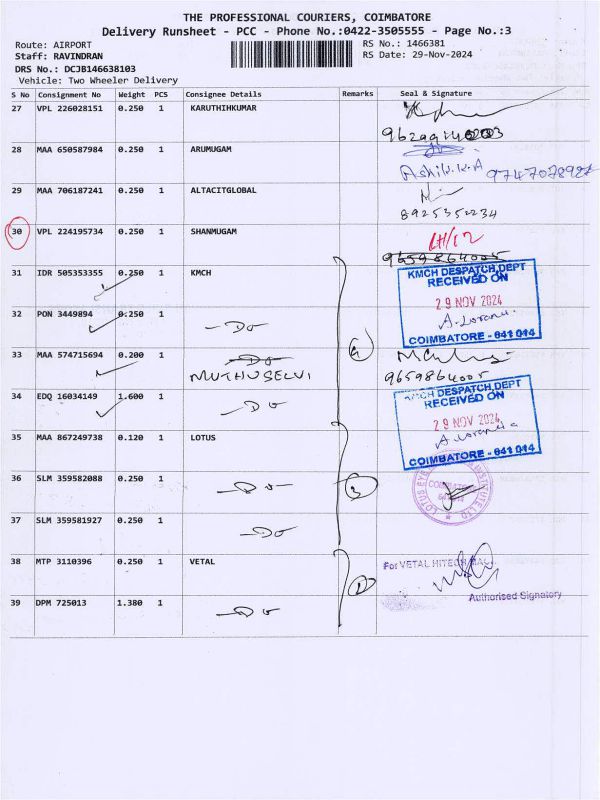 THE PROFESSIONAL COURIERS, COIMBATORE
Delivery Runsheet - PCC - Phone No.:0422-3505555 - Page No.:3
Route: AIRPORT
RS No.: 1466381
Staff: RAVINDRAN
RS Date: 29-Nov-2024
DRS No.: DCJB146638103
Vehicle: Two Wheeler Delivery
S No Consignment No Weight PCS Consignee Details Remarks Seal & Signature
27 VPL 226028151 0.250 1 KARUTHIHKUMAR
28 MAA 650587984 0.250 1 ARUMUGAM
Ashik.K.A
29 MAA 706187241 0.250 1 ALTACITGLOBAL
8925352234
30 VPL 224195734 0.250 1 SHANMUGAM
9659864005
31 IDR 505353355 0.250 1 KMCH
KMCH DESPATCH DEPT
RECEIVED ON
29 NOV 2024
COIMBATORE - 641 014
32 PON 3449894 0.250 1
-Do-
33 MAA 574715694 0.200 1
-Do-
MUTHUSELVI
9659864005
34 EDQ 16034149 1.600 1
-Do-
KMCH DESPATCH DEPT
RECEIVED ON
29 NOV 2024
COIMBATORE - 641 014
35 MAA 867249738 0.120 1 LOTUS
36 SLM 359582088 0.250 1
-Do-
37 SLM 359581927 0.250 1
-Do-
38 MTP 3110396 0.250 1 VETAL
For VETAL HITECH
Authorised Signatory
39 DPM 725013 1.380 1
-Do-